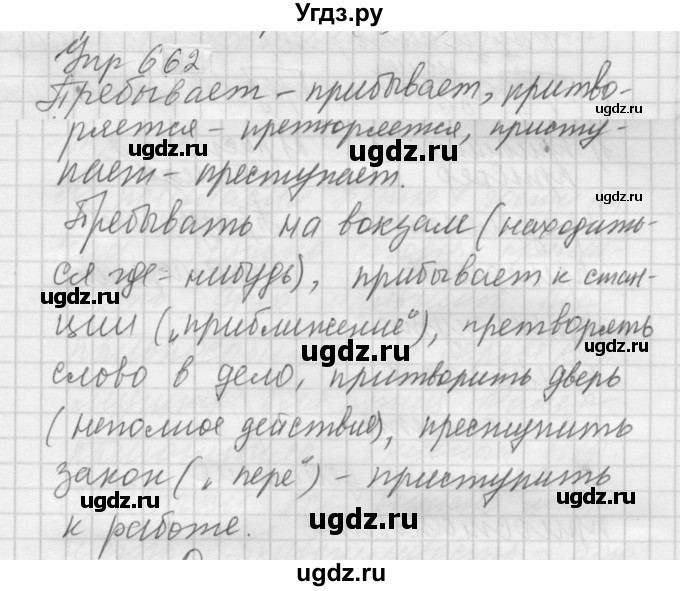 Угдз.ру
Упр 662
Пребывает – прибывает, притво-
ряется – претворяется, присту-
пает – преступает.
Пребывать на вокзале (находить-
ся где-нибудь), прибывает к стан-
ции („приближение“), претворять
слово в дело, притворить дверь
(неполное действие), преступить
закон („пере“) – приступить
к работе.
ugdz.ru
ugdz.ru
ugdz.ru
ugdz.ru
ugdz.ru
ugdz.ru
ugdz.ru
ugdz.ru
ugdz.ru
ugdz.ru
ugdz.ru
ugdz.ru